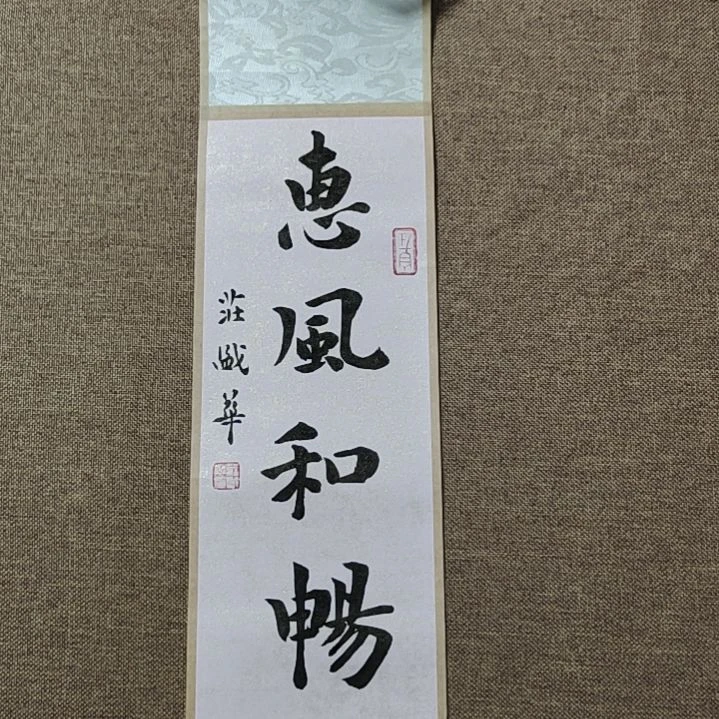 惠風和暢
莊盛華